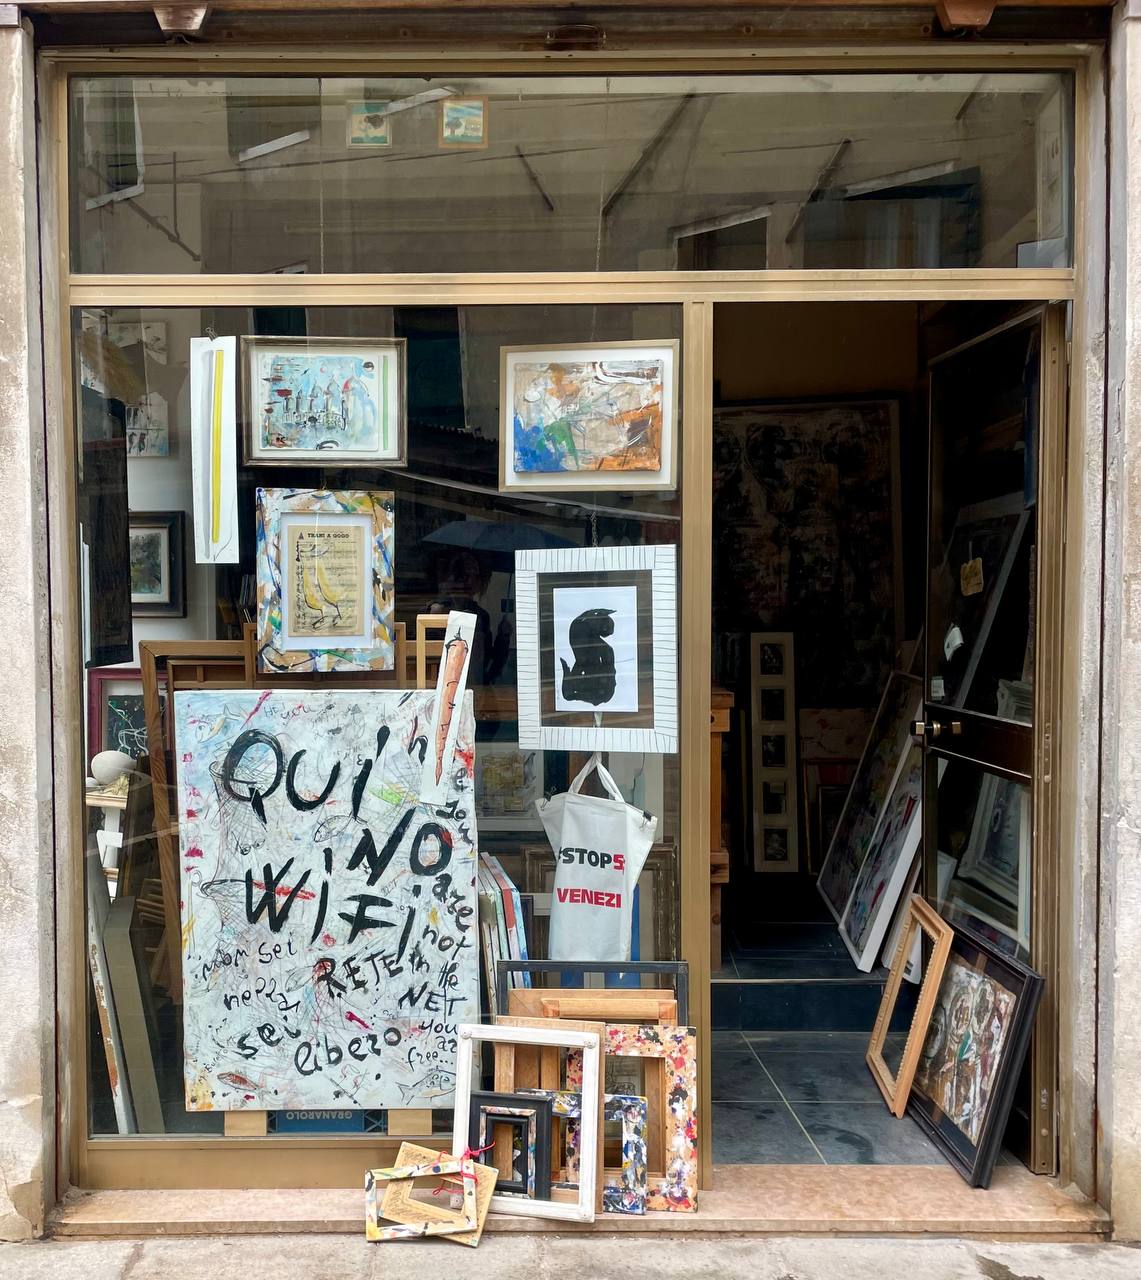 TRANI A GOGO
Hey you
QUI
NO
WIFI
NON SEI
nella
RETE
sei
libero
here
you
are
not
in the
NET
you
are
free...
#STOP5
VENEZI
GRANAROLO